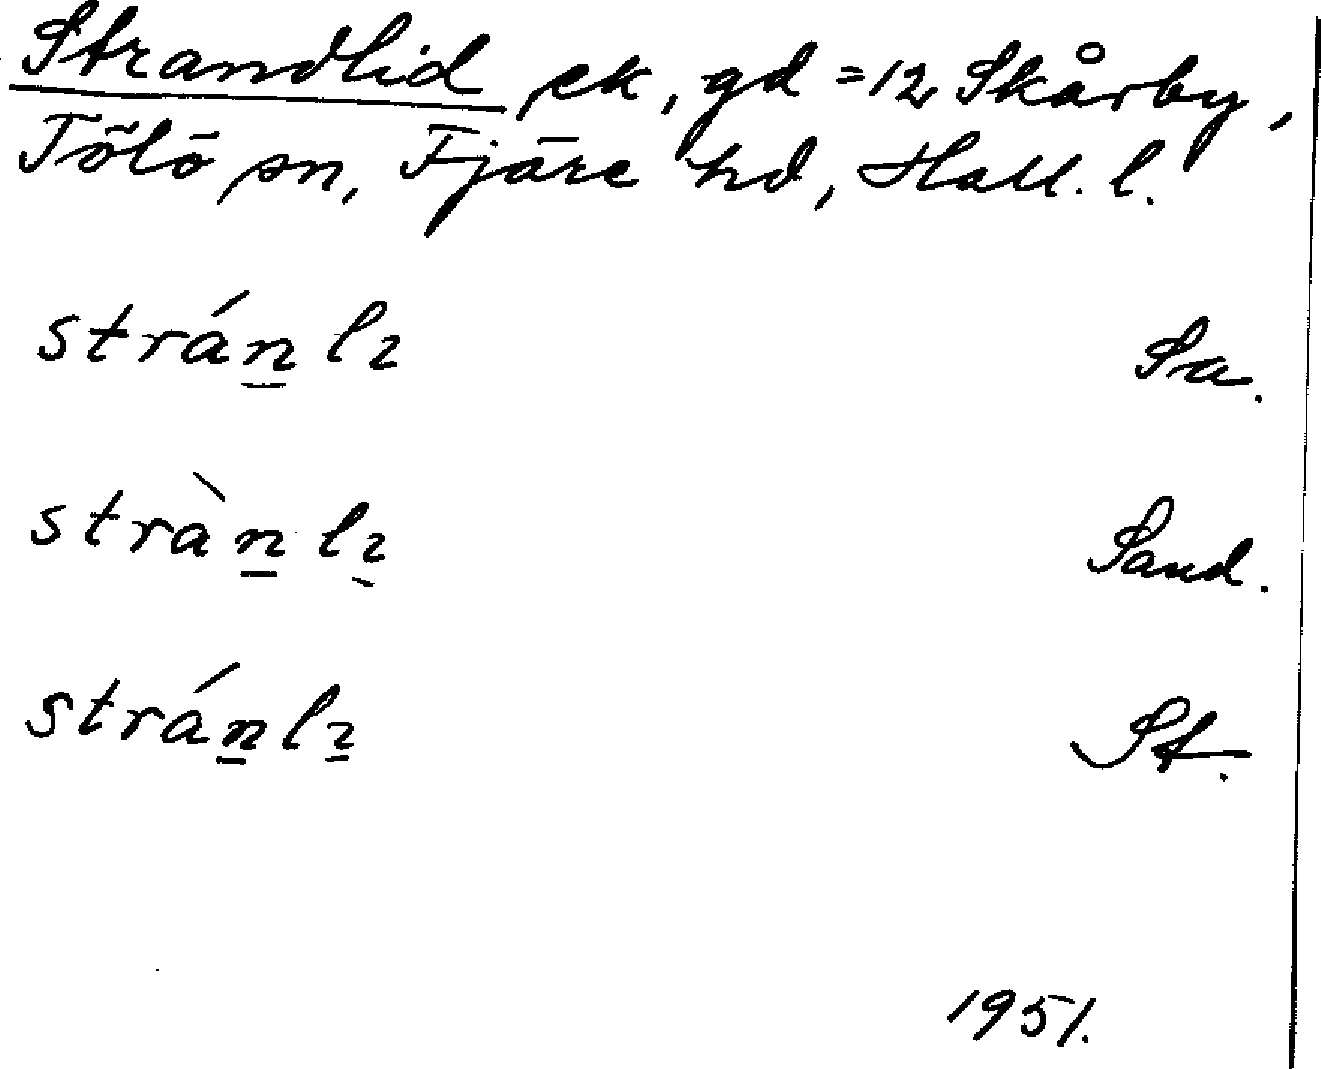 Strandlid, ek, gd = 12 Skårby,
Tölö sn, Fjäre hd, Hall. l.
strán̲lɩ Sa.
stràn̲lɩ̲ Sand.
strán̲lɩ̲ St.
1951.